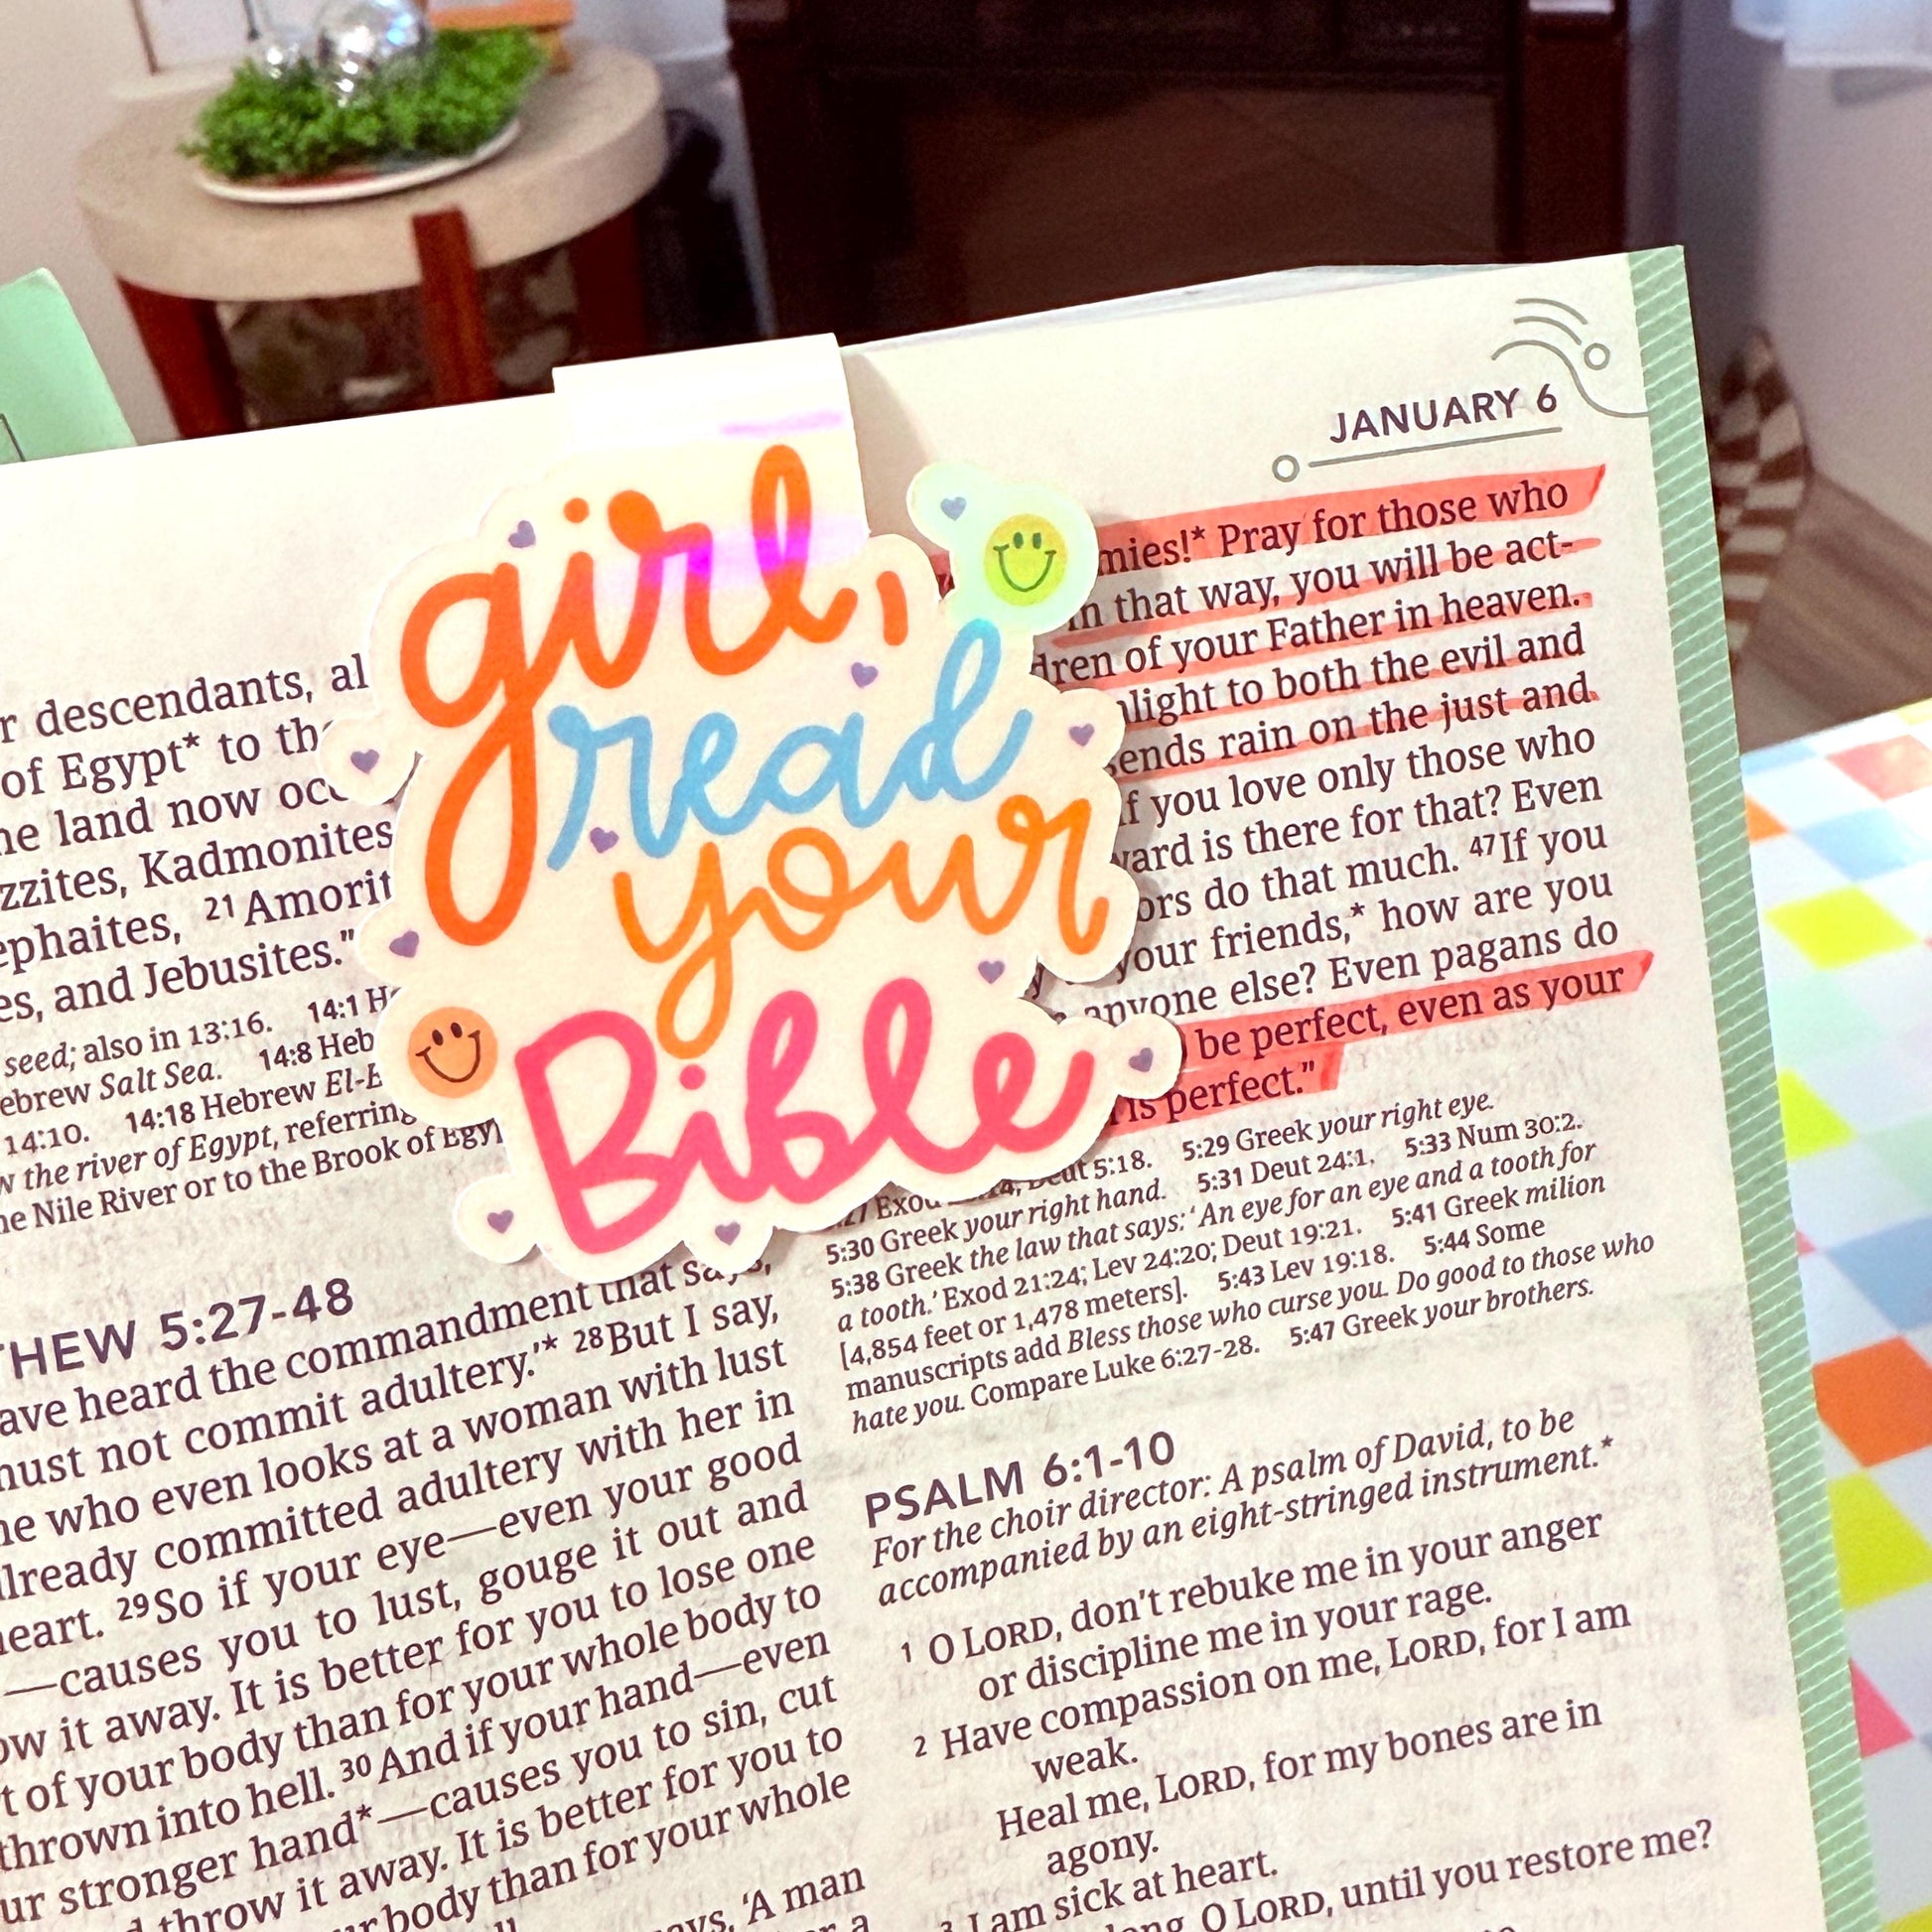 JANUARY 6
girl,
read
your
Bible
r descendants, al
of Egypt* to the
he land now occ
zzites, Kadmonites
ephaites, 21 Amorit
es, and Jebusites."
seed; also in 13:16. 14:1 He
ebrew Salt Sea. 14:8 Heb
14:10. 14:18 Hebrew El-E
w the river of Egypt, referring
he Nile River or to the Brook of Egy
THEW 5:27-48
ave heard the commandment that says,
must not commit adultery.'* 28 But I say,
ne who even looks at a woman with lust
lready committed adultery with her in
heart. 29 So if your eye—even your good
—causes you to lust, gouge it out and
ow it away. It is better for you to lose one
t of your body than for your whole body to
thrown into hell. 30 And if your hand—even
ur stronger hand*—causes you to sin, cut
throw it away. It is better for you to
ur body than for your whole
says, 'A man
r a
mies!* Pray for those who
n that way, you will be act-
dren of your Father in heaven.
nlight to both the evil and
sends rain on the just and
f you love only those who
ward is there for that? Even
ors do that much. 47 If you
your friends,* how are you
anyone else? Even pagans do
be perfect, even as your
is perfect."
5:27 Exod 20:14; Deut 5:18. 5:29 Greek your right eye.
5:30 Greek your right hand. 5:31 Deut 24:1. 5:33 Num 30:2.
5:38 Greek the law that says: 'An eye for an eye and a tooth for
a tooth.' Exod 21:24; Lev 24:20; Deut 19:21. 5:41 Greek milion
[4,854 feet or 1,478 meters]. 5:43 Lev 19:18. 5:44 Some
manuscripts add Bless those who curse you. Do good to those who
hate you. Compare Luke 6:27-28. 5:47 Greek your brothers.
PSALM 6:1-10
For the choir director: A psalm of David, to be
accompanied by an eight-stringed instrument.*
1 O LORD, don't rebuke me in your anger
or discipline me in your rage.
2 Have compassion on me, LORD, for I am
weak.
Heal me, LORD, for my bones are in
agony.
3 I am sick at heart.
long, O LORD, until you restore me?